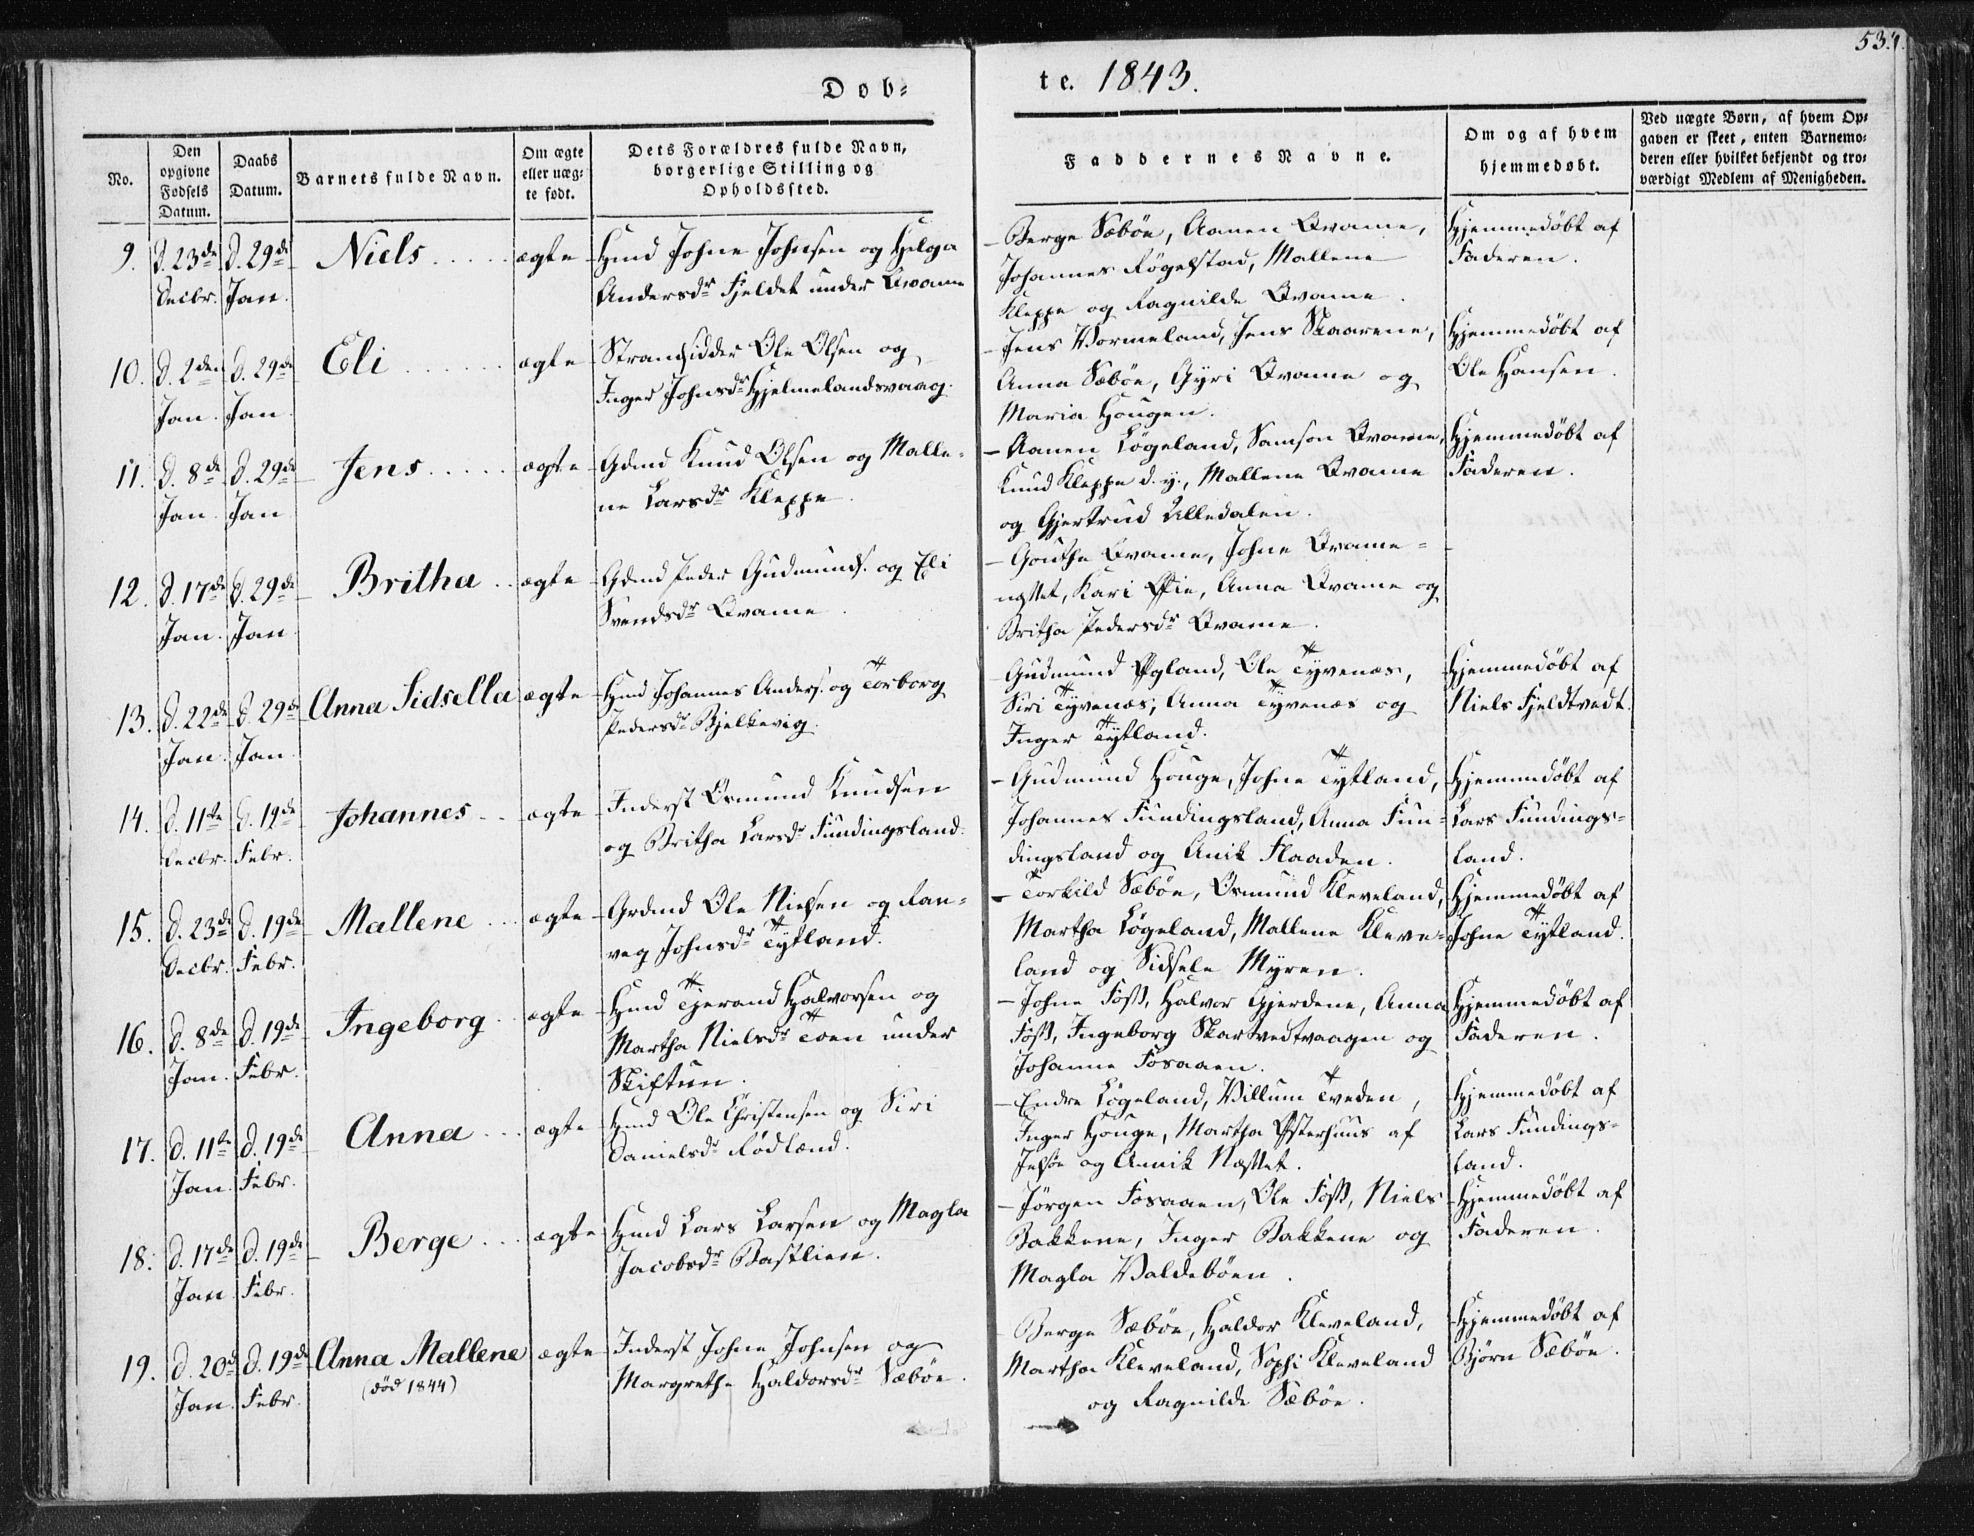 53.
Døb=
te. 1843.
No.
Den opgivne Fødsels Datum.
Daabs Datum.
Barnets fulde Navn.
Om ægte eller uæg=
te født.
Dets Forældres fulde Navn,
borgerlige Stilling og
Opholdssted.
Faddernes Navne.
Om og af hvem
hjemmedøbt.
Ved uægte Børn, af hvem Op=
gaven er skeet, enten Barnemo=
deren eller hvilket bekjendt og tro=
værdigt Medlem af Menigheden.
9. d. 23de Decbr. d. 29de Jan. Niels ægte
Hmd Johne Johnsen og Helga
Andersdr Fjeldet under Qvame
Berge Sæbøe, Aamen Qvame,
Johannes Røgelstad, Mallene
Kleppe og Ragnilde Qvame.
Hjemmedøbt af
Faderen.
10. d. 2den Jan. d. 29de Jan. Eli ægte
Strandsidder Ole Olsen og
Inger Johnsdr Hjelmelandsvaag.
Jens Vormeland, Jens Skaarene,
Anna Sæbøe, Gyri Qvame og
Maria Hougen.
Hjemmedøbt af
Ole Hansen.
11. d. 8de Jan. d. 29de Jan. Jens ægte
Gdmd Knud Olsen og Malle=
ne Larsdr Kleppe.
Aamen Løgeland, Samson Qvame,
Knud Kleppe d. y., Mallene Qvame
og Gjertrud Ulledalen.
Hjemmedøbt af
Faderen.
12. d. 17de Jan. d. 29de Jan. Britha ægte
Gdmd Peder Gudmunds. og Eli
Svendsdr Qvame.
Gouthe Qvame, Johne Qvame=
næsset, Kari Øie, Anna Qvame og
Britha Pedersdr Qvame.
13. d. 22de Jan. d. 29de Jan. Anna Sidsella ægte
Hmd Johannes Anders. og Torborg
Pedersdr Bjelkevig.
Gudmund Øgland, Ole Tyvenæs,
Siri Tyvenæs, Anna Tyvenæs og
Inger Tytland.
Hjemmedøbt af
Niels Fjeldtvedt.
14. d. 11te Decbr. d. 19de Febr. Johannes ægte
Inderst Osmund Knudsen
og Britha Larsdr Fundingsland.
Gudmund Houge, Johne Tytland,
Johannes Fundingsland, Anna Fun=
dingsland og Anik Flaaden.
Hjemmedøbt af
Lars Fundings=
land.
15. d. 23de Decbr. d. 19de Febr. Mallene ægte
Grdmd Ole Nielsen og Ran=
veg Johnsdr Tytland.
Torkild Sæbøe, Osmund Kleveland,
Martha Løgeland, Mallene Kleve=
land og Sidsele Myren.
Hjemmedøbt af
Johne Tytland.
16. d. 8de Jan. d. 19de Febr. Ingeborg ægte
Hmd Tjerand Halvorsen og
Martha Nielsdr Toen under
Skiftun.
Johne Foss, Halvor Gjerdene, Anna
Foss, Ingeborg Skartvedtvaagen og
Johanne Fosaaen.
Hjemmedøbt af
Faderen.
17. d. 11te Jan. d. 19de Febr. Anna ægte
Hmd Ole Christensen og Siri
Danielsdr Rødland.
Endre Løgeland, Villum Tveden,
Inger Houge, Martha Østerhuus af
Jelsøe og Annik Næsset.
Hjemmedøbt af
Lars Fundings=
land.
18. d. 17de Jan. d. 19de Febr. Berge ægte
Hmd Lars Larsen og Magla
Jacobsdr Bastlien.
Jørgen Fosaaen, Ole Foss, Niels
Bakkene, Inger Bakkene og
Magla Valdebøen.
Hjemmedøbt af
Faderen.
19. d. 20d Jan. d. 19de Febr. Anna Mallene ægte
(død 1844)
Inderst Johne Johnsen og
Margrethe Haldorsdr Sæbøe.
Berge Sæbøe, Haldor Kleveland,
Martha Kleveland, Sophi Kleveland
og Ragnilde Sæbøe.
Hjemmedøbt af
Bjørn Sæbøe.